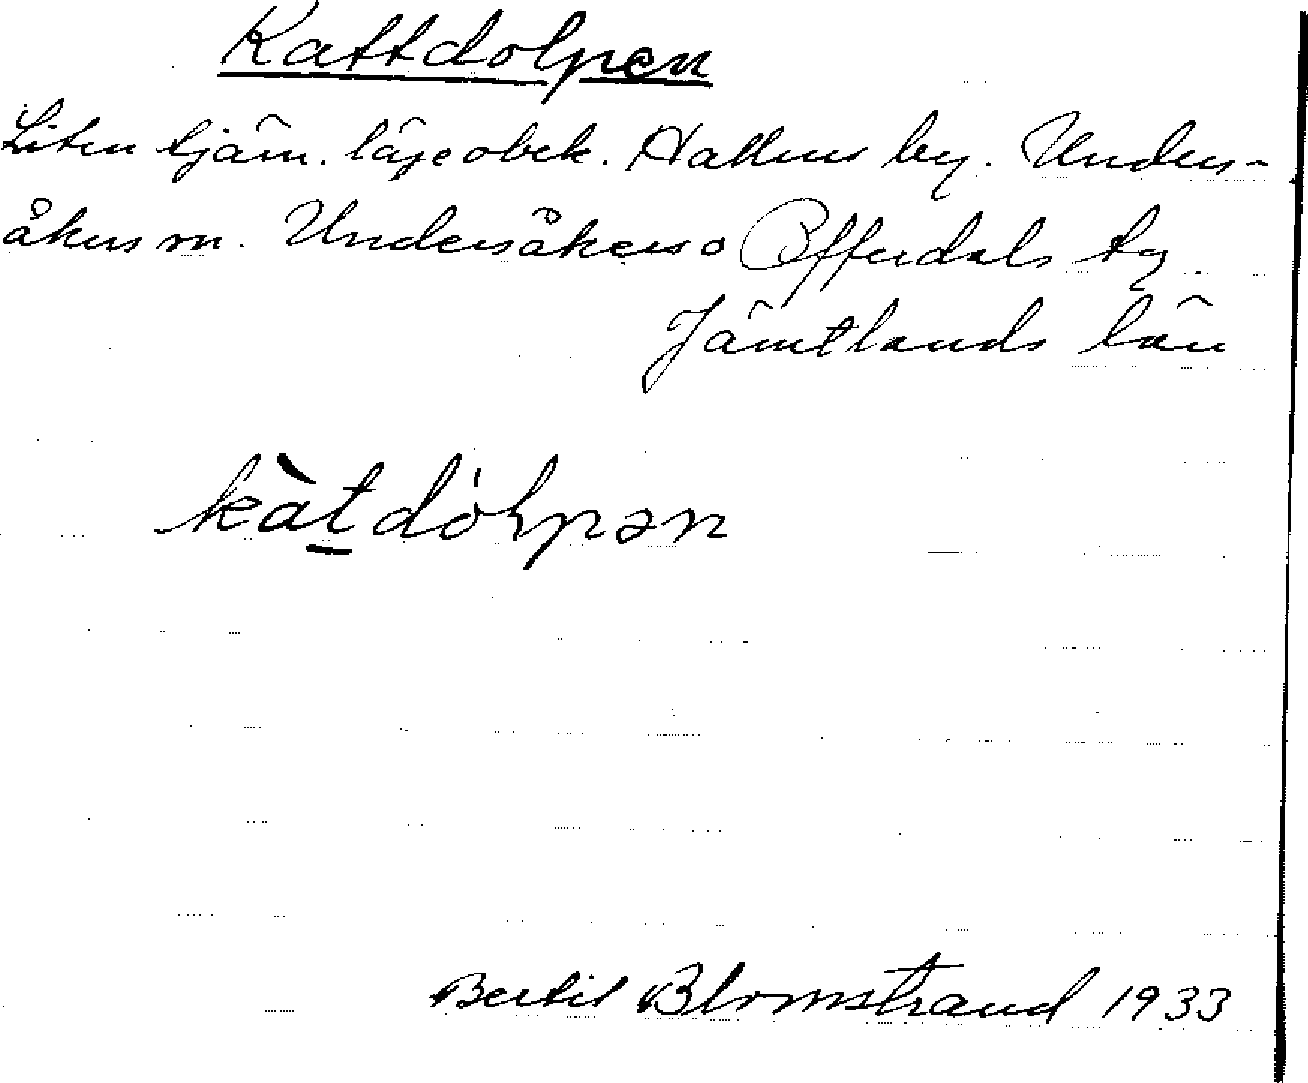 Kattdolpen
Liten tjärn. läge obek. Hallens by. Unders-
åkers sn. Undersåkers o Offerdals tg
Jämtlands län
kàtdólpən
Bertil Blomstrand 1933